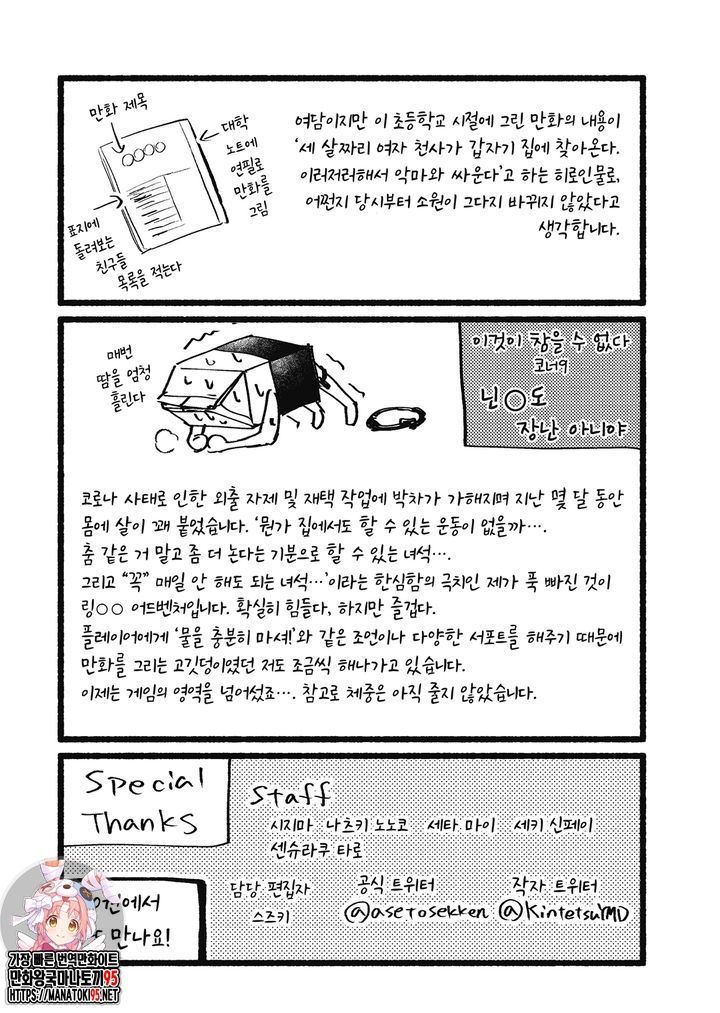 만화 제목
○○○○
대학
노트에
연필로
만화를
그림
표지에
돌려보는
친구들
목록을 적는다
여담이지만 이 초등학교 시절에 그린 만화의 내용이
‘세 살짜리 여자 천사가 갑자기 집에 찾아온다.
이러저러해서 악마와 싸운다’고 하는 히로인물로,
어쩐지 당시부터 소원이 그다지 바뀌지 않았다고
생각합니다.
매번
땀을 엄청
흘린다
이것이 참을 수 없다
코너9
닌○도
장난 아니야
코로나 사태로 인한 외출 자제 및 재택 작업에 박차가 가해지며 지난 몇 달 동안
몸에 살이 꽤 붙었습니다. ‘뭔가 집에서도 할 수 있는 운동이 없을까….
춤 같은 거 말고 좀 더 논다는 기분으로 할 수 있는 녀석….
그리고 “꼭” 매일 안 해도 되는 녀석…’이라는 한심함의 극치인 제가 푹 빠진 것이
링○○ 어드벤처입니다. 확실히 힘들다, 하지만 즐겁다.
플레이어에게 ‘물을 충분히 마셔!’와 같은 조언이나 다양한 서포트를 해주기 때문에
만화를 그리는 고깃덩이였던 저도 조금씩 해나가고 있습니다.
이제는 게임의 영역을 넘어섰죠…. 참고로 체중은 아직 줄지 않았습니다.
Special
Thanks
Staff
시지마 나츠키 노노코 세타 마이 세키 신페이
센슈라쿠 타로
담당 편집자
스즈키
공식 트위터
@asetosekken
작자 트위터
@KintetsuYMD
권에서
만나요!
가장 빠른 번역만화이트
만화왕국마나토끼95
HTTPS://MANATOKI95.NET